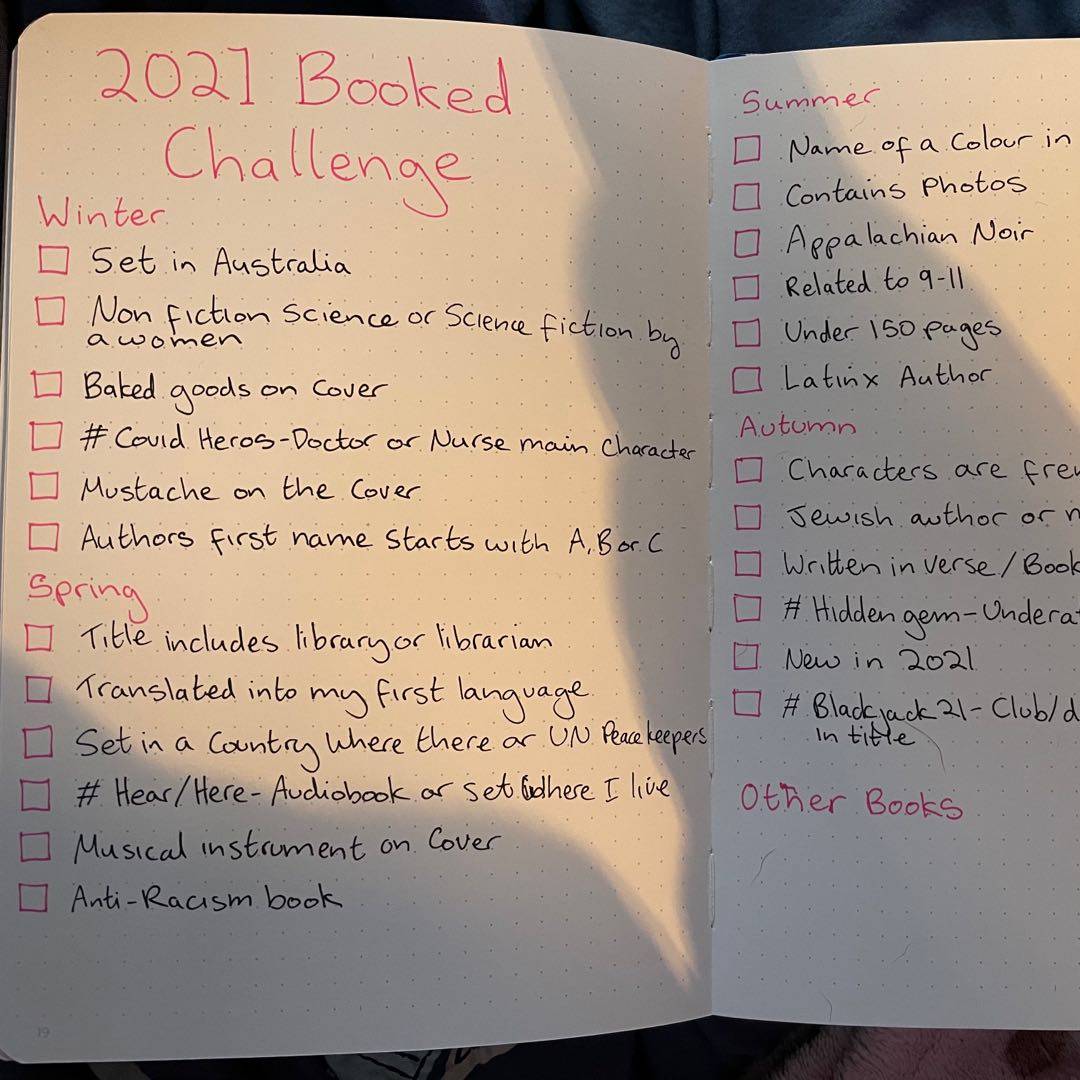 2021 Booked
Challenge
Winter
Set in Australia
Non fiction Science or Science fiction by
a women
Baked goods on Cover
# Covid Heros-Doctor or Nurse main Character
Mustache on the Cover
Authors first name starts with A, B or C
Spring
Title includes library or librarian
Translated into my first language
Set in a Country where there ar UN Peacekeepers
# Hear/Here- Audiobook or set where I live
Musical instrument on Cover
Anti-Racism book
19
Summer
Name of a Colour in
Contains Photos
Appalachian Noir
Related to 9-11
Under 150 pages
Latinx Author
Autumn
Characters are
Jewish author or
Written in verse / Book
# Hidden gem-
New in 2021
# Blackjack 21- Club/
in title
Other Books